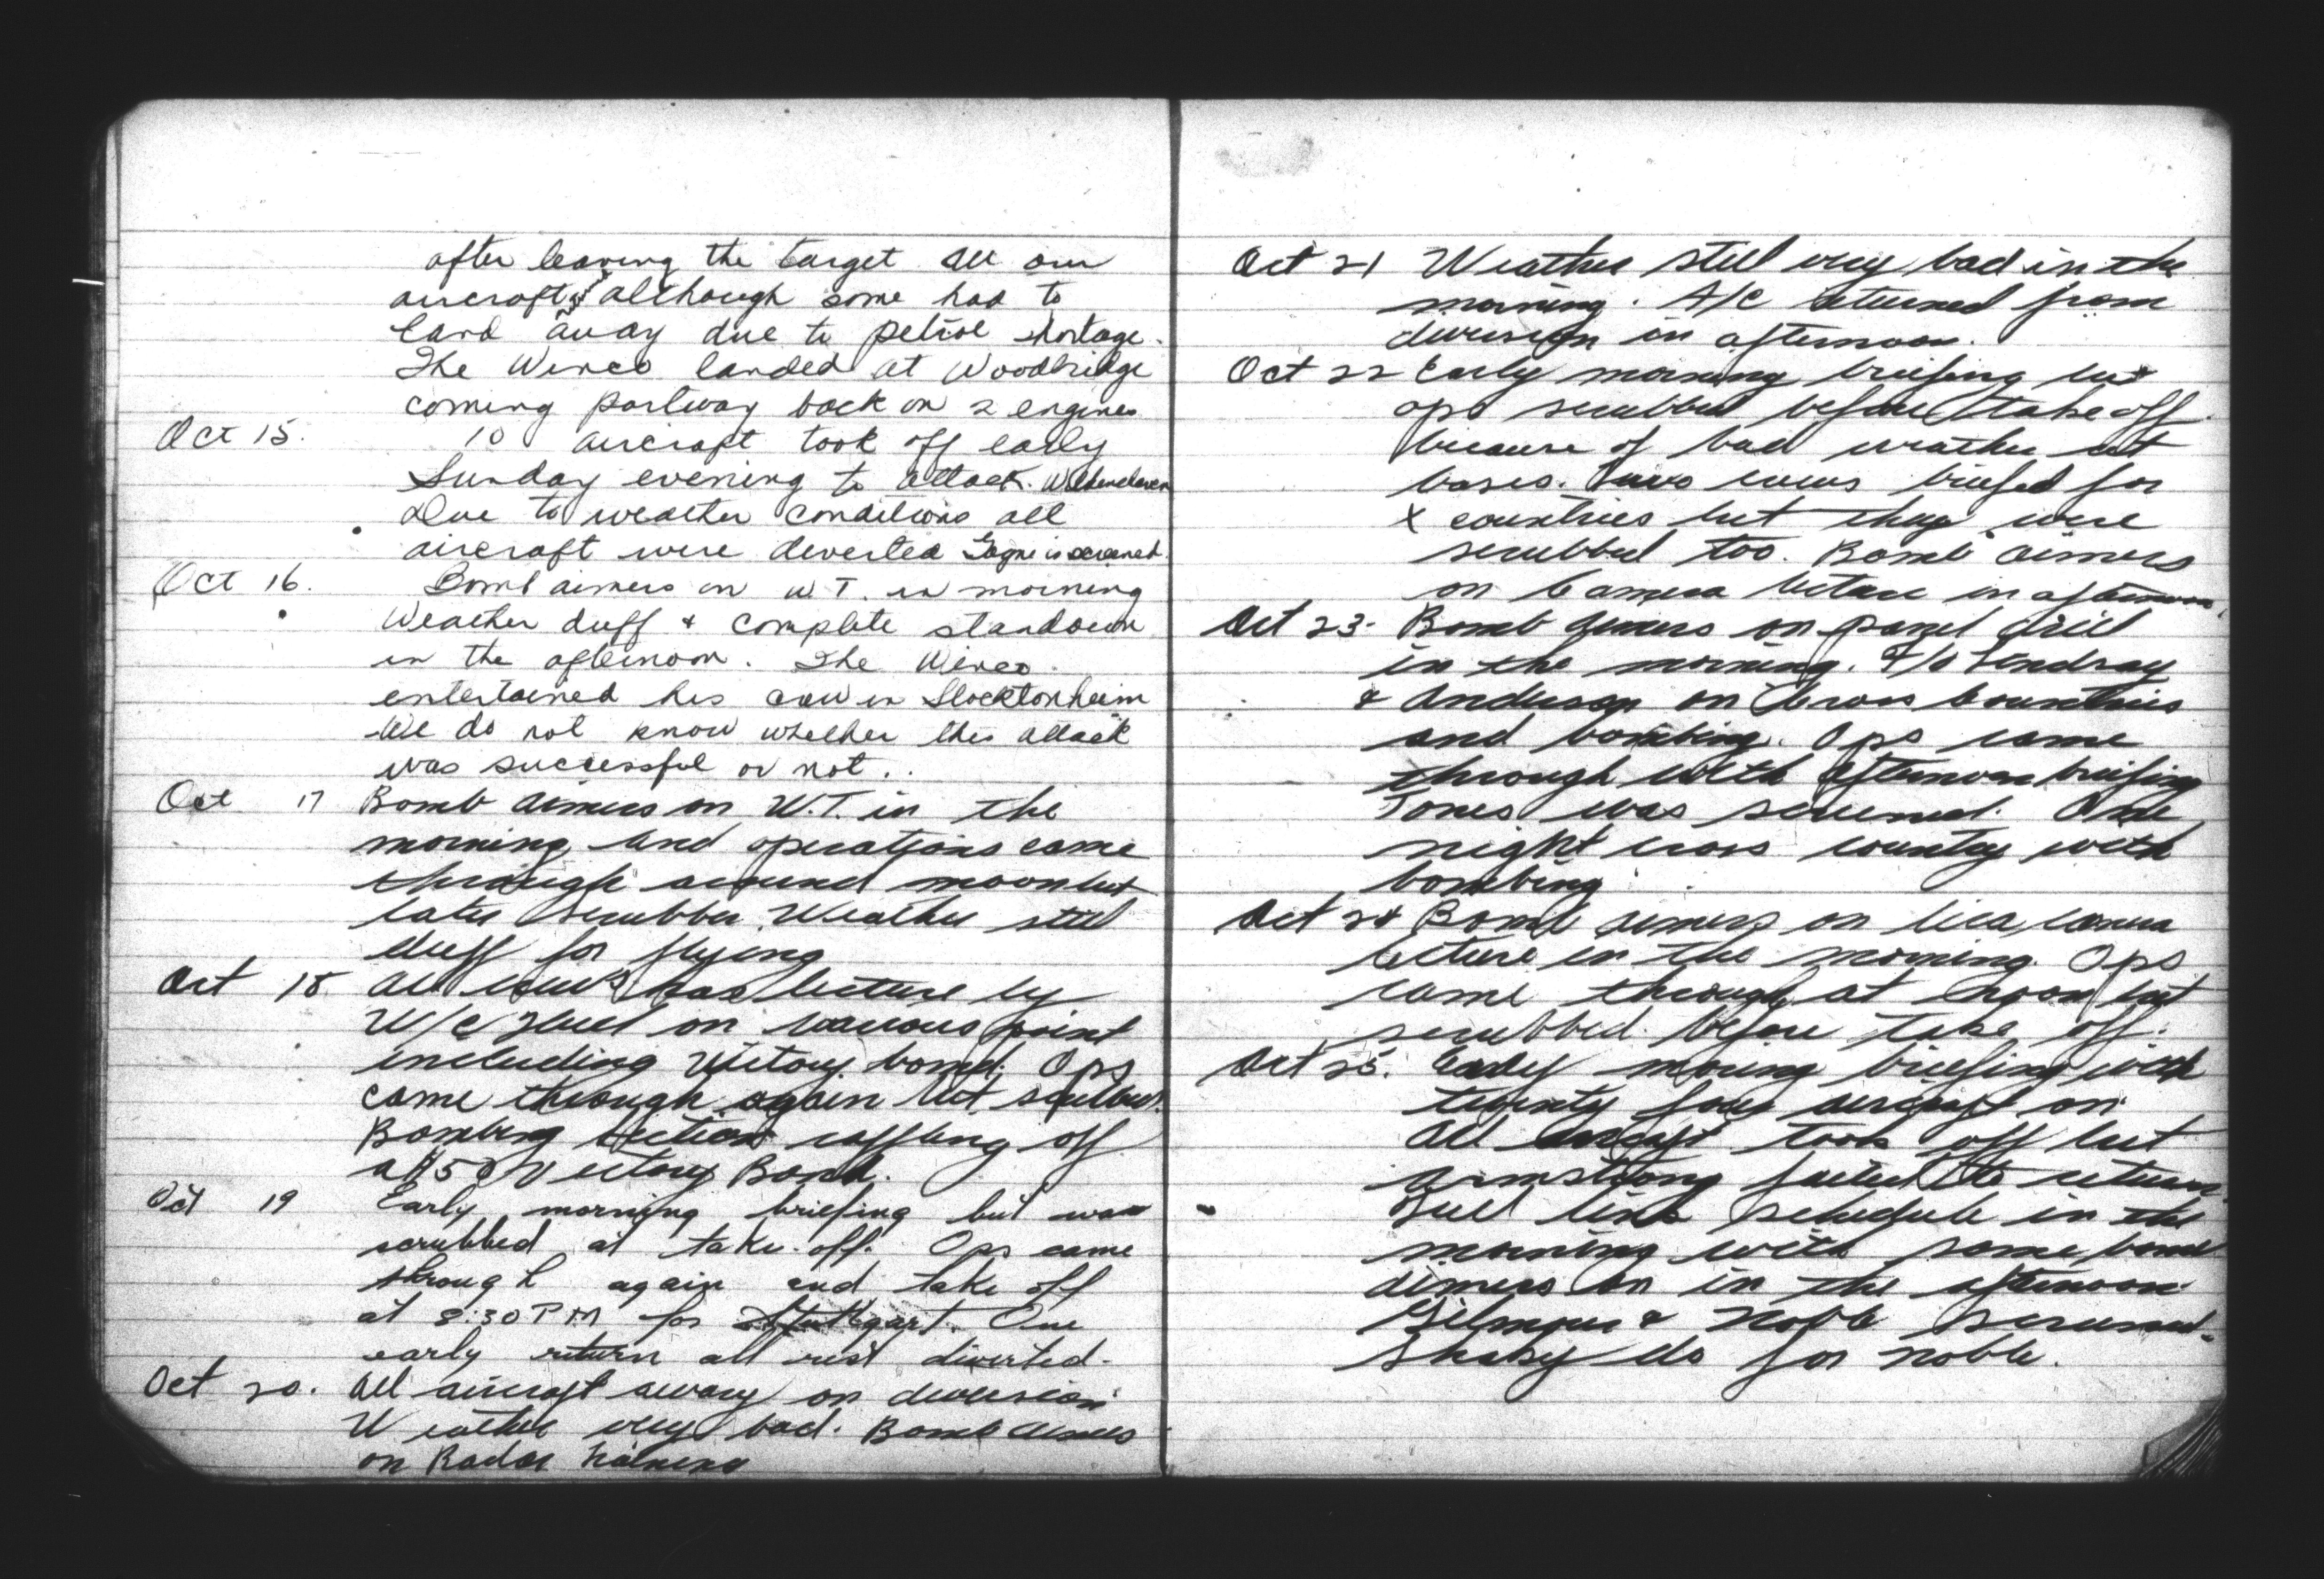 after leaving the target All our
aircraft although some had to
land away due to petrol shortage.
The Winco landed at Woodbridge
coming partway back on 2 engines
Oct 15. 10 aircraft took off early
Sunday evening to attack Wilhemshaven
Due to weather conditions all
aircraft were diverted Gagne is screened.
Oct 16. Bomb aimers on W.T. in morning
Weather duff & complete standown
in the afternoon. The Winco
entertained his crew in Stocktonheim
We do not know whether this attack
was successful or not..
Oct 17 Bomb Aimers on W.T. in the
morning and operations came
through around noon but
later scrubbed. Weather still
duff for flying
Oct 18. All crews had lecture by
W/C on various point
including Victory bond. Ops
came through again but scrubbed.
Bombing section raffling off
a $50 Victory Bond.
Oct 19 Early morning briefing but was
scrubbed at take-off. Ops came
through again and take off
at 8:30 PM for Stuttgart. One
early return all rest diverted.
Oct 20. All aircraft away on diversion
Weather very bad. Bomb Aimers
on Radar Training
Oct 21 Weather still very bad in the
morning. A/C returned from
diversion in afternoon.
Oct 22 Early morning briefing but
ops scrubbed before take off
because of bad weather at
bases. Two crews briefed for
X countries but they were
scrubbed too. Bomb Aimers
on Camera lecture in afternoon.
Oct 23. Bomb Aimers on panel drill
in the morning. F/O Lindsay
& Anderson on Cross Countries
and bombing. Ops came
through with afternoon briefing
Jones was screened. One
night cross country with
bombing
Oct 24 Bomb Aimers on camera
lecture in the morning. Ops
came through at noon but
scrubbed before take off.
Oct 25. Early moring briefing with
twenty four aircraft on
All aircraft took off but
Armstrong failed to return.
Full link schedule in the
morning with some bomb
aimers on in the afternoon
Gilmour & Noble screened.
Shaky do for Noble.